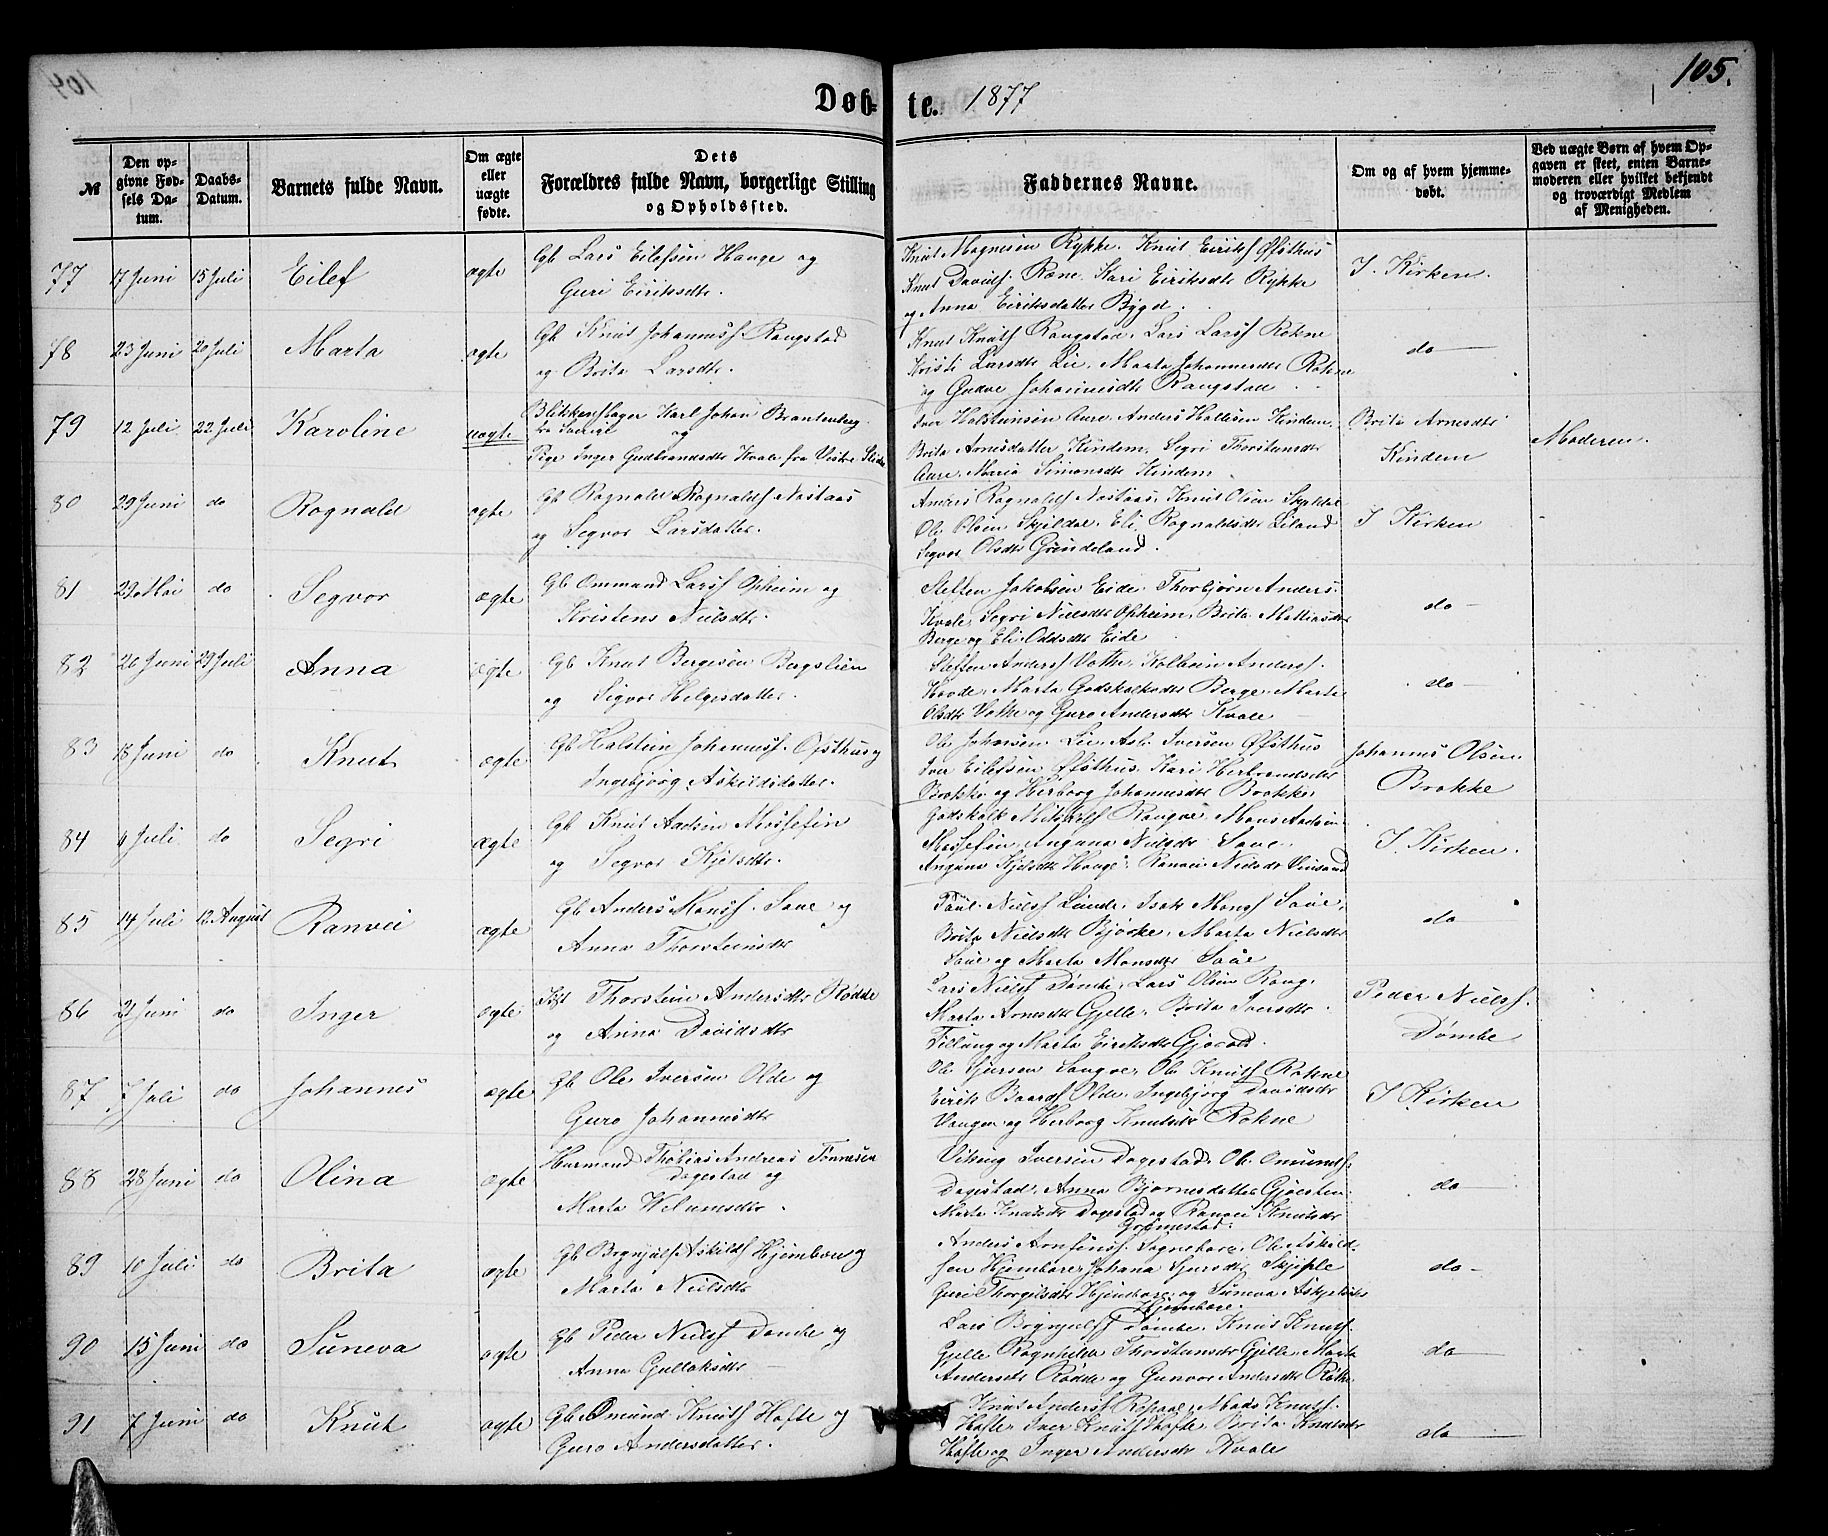 105.
Døb- te. 1877
№
Den opgivne Fødsels Datum.
Daabs-Datum.
Barnets fulde Navn.
Om ægte eller uægte fødte.
Dets Forældres fulde Navn, borgerlige Stilling og Opholdssted.
Faddernes Navne.
Om og af hvem hjemmedøbt.
Ved uægte Børn af hvem Opgaven er skeet, enten Barnemoderen eller hvilket bekjendt og troværdigt Medlem af Menigheden.
77 17 Juni 15 Juli Eilef ægte Gb Lars Eilefsen Hauge og
Guri Eiriksdtr.
Knut Magnesen Rykke. Knut Eiriks Øfsthus
Knut Davids. Rene, Kari Eiriksdtr Rykke
og Anna Eiriksdatter Bygd.
I Kirken.
78 23 Juni 20 Juli Marta ægte Gb Knut Johanness Raugstad
og Brita Larsdtr.
Knut Knuts Raugstad, Lars Larss Rokne
Kristi Larsdtr Lie, Marta Johannesdtr Rokne
og Gudve Johannesdtr Raugstad
do
79 12 Juli 22 Juli Karoline uægte Blikkenslager Karl Johan Brantenberg
fra Sverige og
Pige Inger Gudbrandsdtr Kvale fra Vestre Slidre
Iver Holsteinsen Aure, Anders Hallesen Kindem,
Brita Arnesdatter Kindem, Segri Torsteinsdtr
Aure, Maria Simonsdtr Kindem
Brita Arnesdtr
Kindem
Moderen.
80 29 Juni do Rognald ægte Gb Rognald Rognalds Nøstaas
og Segvor Larsdatter.
Anders Rognalds Nøstaas, Knut Olsen Skjeldal
Ole Olsen Skjeldal, Eli Rognaldsdtr Leland
Segvor Olsdtr Grindeland.
I Kirken
81 29 Mai do Segvor ægte Gb Ommund Larss Opheim og
Kristens Nielsdtr.
Steffen Jakobsen Eide. Thorbjørn Anders.
Kvale, Segri Nielsdtr Opheim, Brita Mathiasdtr
Berge og Eli Oddsdtr Eide
do
82 20 Juni 29 Juli Anna ægte Gb Knut Bergesen Bergslien
og Sigvor Helgesdatter.
Steffen Anderss Vethe. Kolbein Anderss.
Hovde, Marta Godskalksdtr Berge, Marta
Olsdtr Vethe og Guro Andersdtr Kvale
do
83 18 Juni do Knut ægte Gb Holstein Johanness. Øfsthus og
Ingebjørg Askildsdatter.
Ole Johansen Lie, Asle Iversen Øfsthus
Iver Eilefsen Øfsthus, Kari Herbrandsdtr
Brekke og Herborg Johannesdtr Brekke,
Johannes Olsen
Brekke
84 9 Juli do Segri ægte Gb Knut Aadsen Mossefin
og Segvor Kjelsdtr.
Mossefin, Angunna Nielsdtr Saue,
I Kirken.
85 14 Juli 12 August Ranvei ægte Gb Anders Monss. Saue og
Anna Thorsteinsdtr
Paul Nielss Lunde, Isak Monss Saue,
Brita Nielsdtr Bjørke, Marta Nielsdtr
Saue og Marta Monsdtr Saue
do
86 21 Juni do Inger ægte Thorstein Andersdtr Rødde
og Anna Davidsdtr
Lars Nielss Dømbe, Lars Olsen Raug,
Marta Arnesdtr Gjelle, Brita Iversdtr
Tillung og Marta Eiriksdtr
Peder Nielss.
Dømbe
87 7 Juli do Johannes ægte Gb Ole Iversen Olde og
Guro Johannesdtr
Ole Sjursen, Ole Knuts Rokne
Eirik Baards Olde. Ingebjørg Davidsdtr
Vangen og Herborg Knutsdtr Rokne
I Kirken
88 28 Juni do Olina ægte Husmand Thobias Andreas Tønnesen
Dagestad og
Marta
Viking Iversen Dagestad, Ole Omunds.
Dagestad, Anna Bjørnesdatter Gjøsten
Marta Knutsdtr Dagestad og Ranvei Knutsdtr
do
89 10 Juli do Brita ægte Gb Brynjulf Askilds Hjembore og
Marta Nielsdtr
Anders Arnfinss. Sognebore. Ole Askild-
sen Hjembore, Johana Sjursdtr Skjeple
Guri Thorgilsdtr Hjembore, og Suneva
Hjembore.
do
90 15 Juni do Suneva ægte Gb Peder Nielss Dømbe og
Anna Gullaksdtr
Lars Brynjulfs Dømbe. Knut Knuts.
Gjelle Ragnhilda Thorsteinsdtr Gjelle, Marta
Andersdtr Rødde og Gunvor Andersdtr Røthe.
do
91 7 Juni do Knut ægte Gb Omund Knuts Hefte og
Guro Andersdatter.
Knut Anderss Repaal, Mads Knuts.
Hefte, Iver Knuts Hefte, Brita Knutsdtr
Hefte og Inger Andersdtr Kvale
do